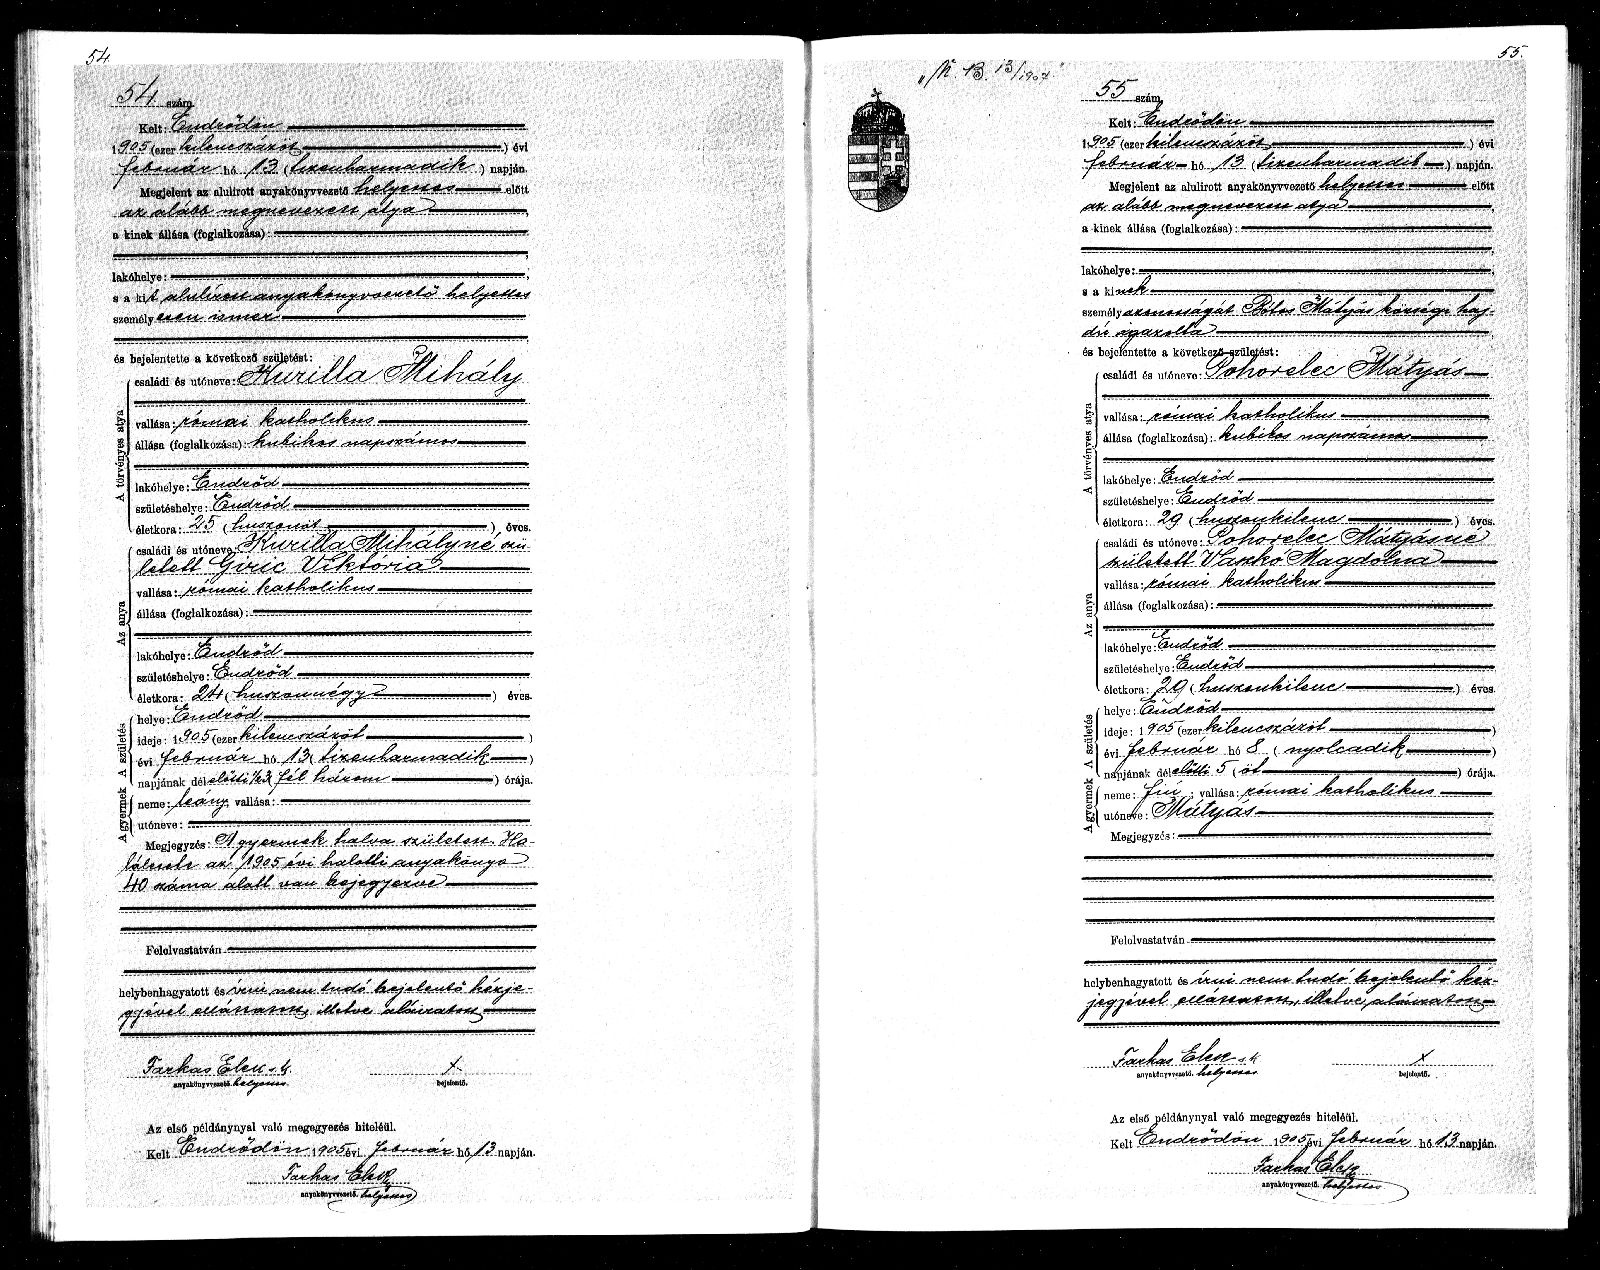 54.
54 szám.
Kelt: Endrődön
1905 (ezer kilencszázöt) évi
február hó 13 (tizenharmadik) napján.
Megjelent az alulirott anyakönyvvezető helyettes előtt
az alább megnevezett atya
a kinek állása (foglalkozása):
lakóhelye:
s a kit alulírott anyakönyvvezető helyettes
személyesen ismer
és bejelentette a következő születést:
A törvényes atya
családi és utóneve: Kurilla Mihály
vallása: római katholikus
állása (foglalkozása): kubikos napszámos
lakóhelye: Endrőd
születéshelye: Endrőd
életkora: 25 (huszonöt) éves.
Az anya
családi és utóneve: Kurilla Mihályné szü-
letett Giric Viktória
vallása: római katholikus
állása (foglalkozása):
lakóhelye: Endrőd
születéshelye: Endrőd
életkora: 24 (huszonnégy) éves.
A születés
helye: Endrőd
ideje: 1905 (ezer kilencszázöt)
évi február hó 13 (tizenharmadik)
napjának délelőtti 1/23 (fél három) órája.
A gyermek
neme: leány; vallása:
utóneve:
Megjegyzés: A gyermek halva született. Ha-
lálesete az 1905 évi halotti anyakönyv
40 száma alatt van bejegyezve
Felolvastatván
helybenhagyatott és írni nem tudó bejelentő kézje-
gyével ellátott, illetve aláíratott
Farkas Elek s.k.
anyakönyvvezető helyettes
x
bejelentő.
Az első példánynyal való megegyezés hiteléül.
Kelt Endrődön 1905 évi február hó 13 napján.
Farkas Elek
anyakönyvvezető. helyettes
55.
"N. B. 13/1907"
55 szám.
Kelt: Endrődön
1905 (ezer kilencszázöt) évi
február hó 13 (tizenharmadik) napján.
Megjelent az alulirott anyakönyvvezető helyettes előtt
az alább megnevezett atya
a kinek állása (foglalkozása):
lakóhelye:
s a kinek
személyazonosságát Bótos Mátyás községi haj-
dú igazolta
és bejelentette a következő születést:
A törvényes atya
családi és utóneve: Pohorelec Mátyás
vallása: római katholikus
állása (foglalkozása): kubikos napszámos
lakóhelye: Endrőd
születéshelye: Endrőd
életkora: 29 (huszonkilenc) éves.
Az anya
családi és utóneve: Pohorelec Mátyásné
született Vaszkó Magdolna
vallása: római katholikus
állása (foglalkozása):
lakóhelye: Endrőd
születéshelye: Endrőd
életkora: 29 (huszonkilenc) éves.
A születés
helye: Endrőd
ideje: 1905 (ezer kilencszázöt)
évi február hó 8 (nyolcadik)
napjának délelőtti 5 (öt) órája.
A gyermek
neme: fiú; vallása: római katholikus
utóneve: Mátyás
Megjegyzés:
Felolvastatván
helybenhagyatott és írni nem tudó bejelentő kéz-
jegyével ellátatott, illetve aláíratott
Farkas Elek s.k.
anyakönyvvezető. helyettes
x
bejelentő.
Az első példánynyal való megegyezés hiteléül.
Kelt Endrődön 1905 évi február hó 13 napján.
Farkas Elek
anyakönyvvezető. helyettes